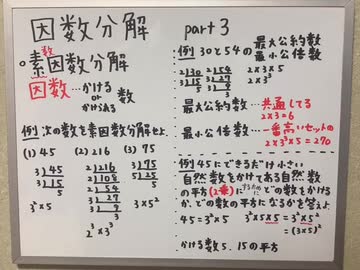 因数分解 part 3
数
・素因数分解
因数…かける or かけられる 数
例 次の数を素因数分解せよ
(1) 45 (2) 216 (3) 75
3)45
3)15
5
3²×5
2)216
2)108
2)54
3)27
3)9
3
2³×3³
3)75
5)25
5
3×5²
例 30と54の 最大公約数 最小公倍数
2)30
3)15
5
2)54
3)27
3)9
3
2×3×5
2×3³
最大公約数…共通してる
2×3=6
最小公倍数…一番高いセットの
2×3³×5=270
例 45にできるだけ小さい
自然数をかけてある自然数
の平方(2乗)にするためにどの数をかける
か、どの数の平方になるかを答えよ
45=3²×5 3²×5×5=3²×5²
=(3×5)²
かける数5、15の平方